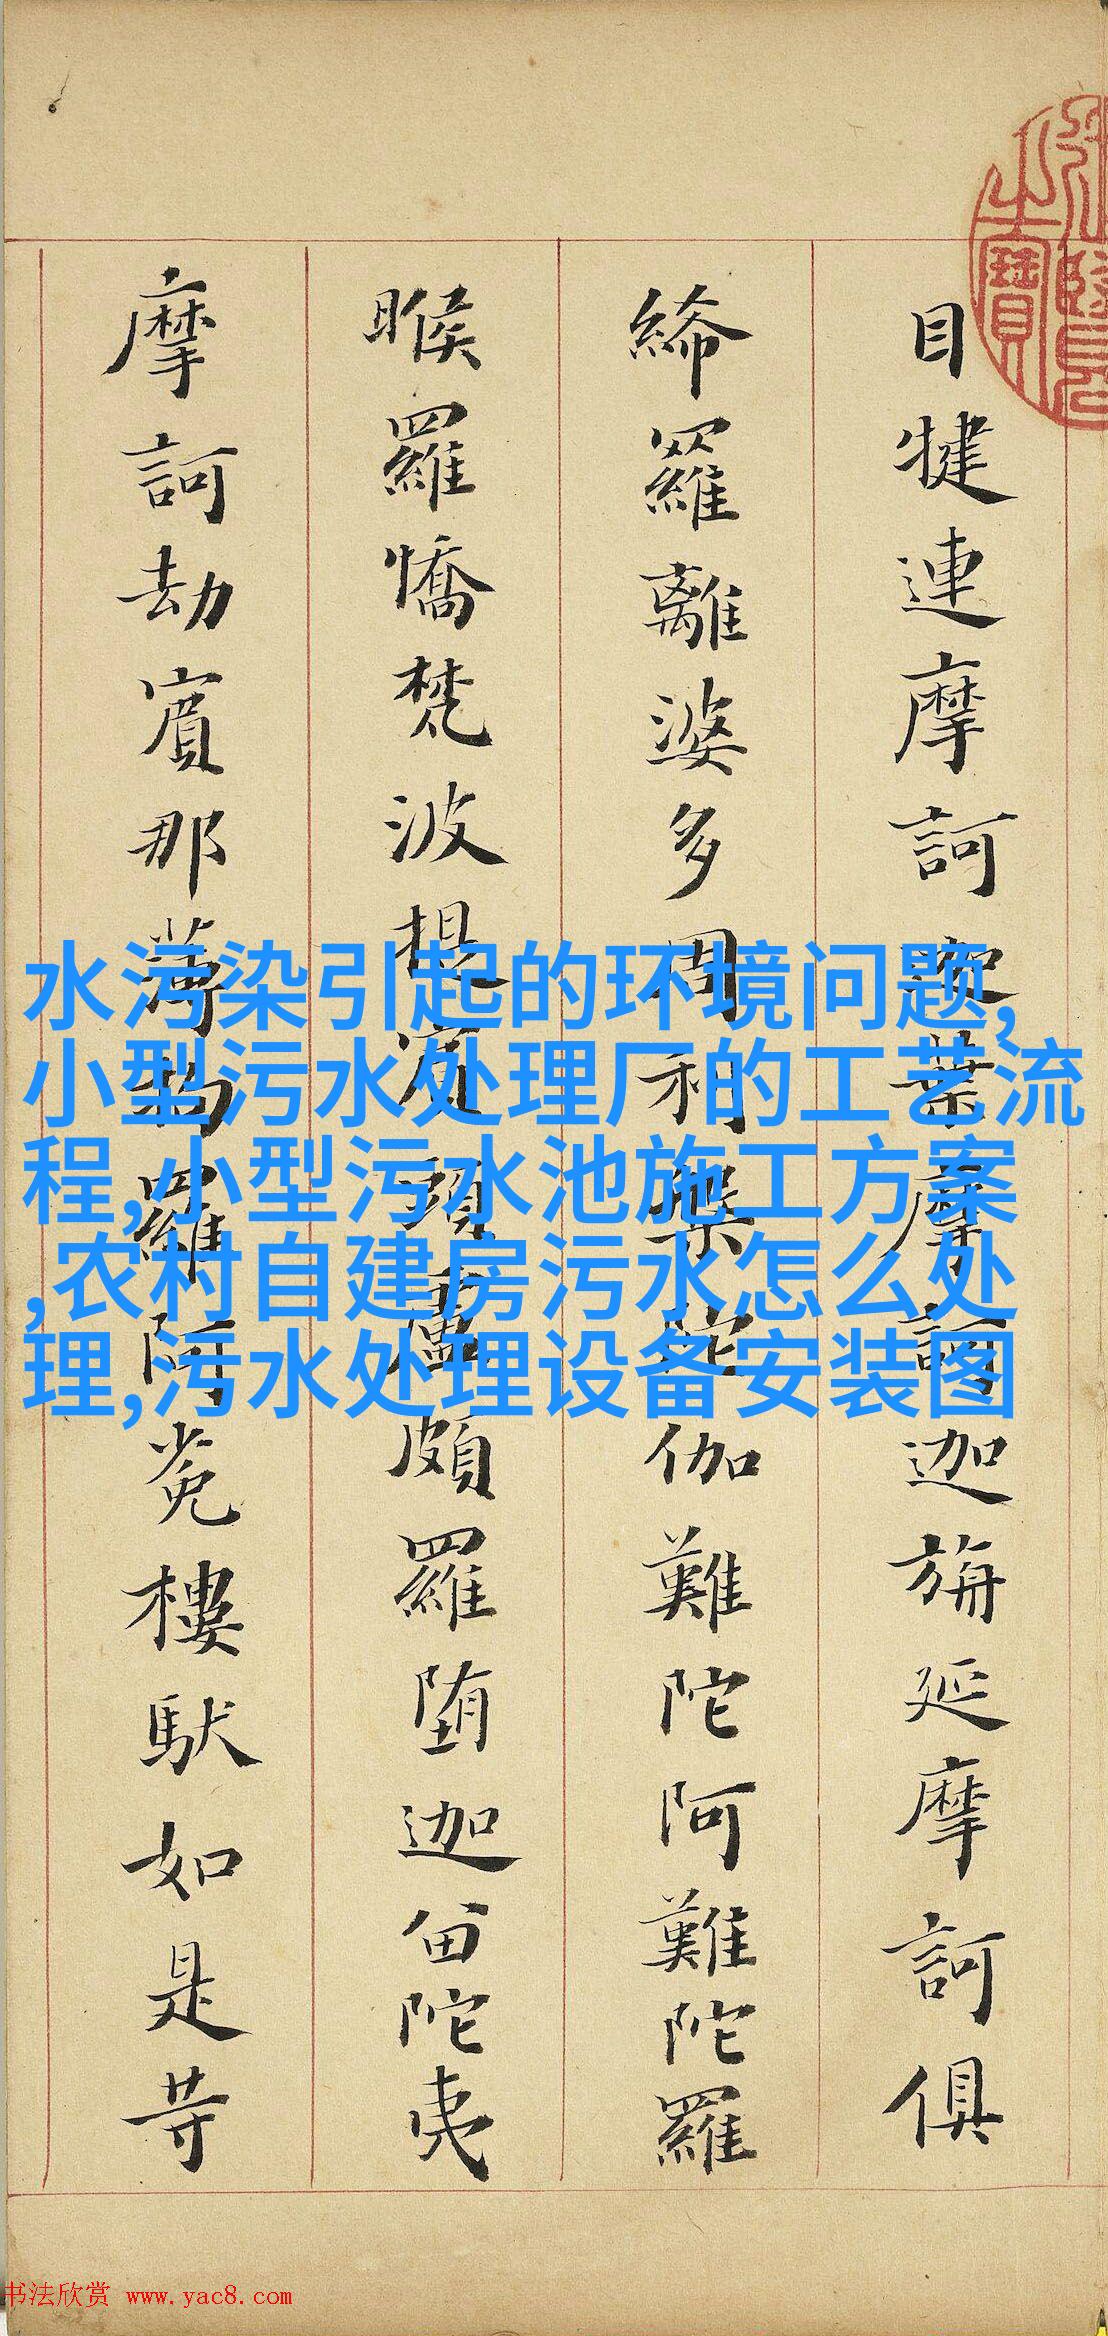 目犍連摩訶迦葉摩訶迦旃延摩訶俱
絺羅離婆多周利槃陀伽難陀阿難陀羅
睺羅憍梵波提賓頭盧頗羅堕迦畄陀夷
摩訶劫賓那薄拘羅阿㝹樓馱如是等
之寶
水污染引起的环境问题,
小型污水处理厂的工艺流
程,小型污水池施工方案
,农村自建房污水怎么处
理,污水处理设备安装图
书法欣赏 www.yac8.com